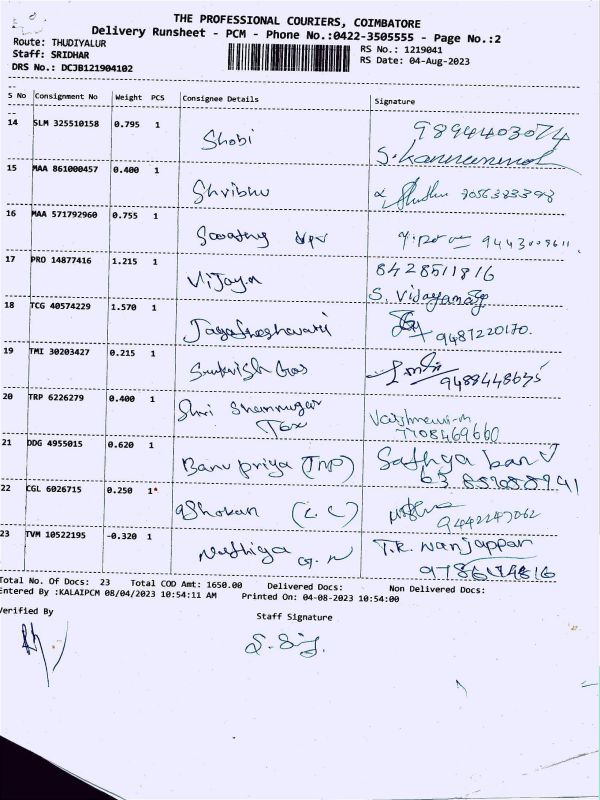 THE PROFESSIONAL COURIERS, COIMBATORE
Delivery Runsheet - PCM - Phone No.:0422-3505555 - Page No.:2
Route: THUDIYALUR
RS No.: 1219041
Staff: SRIDHAR
RS Date: 04-Aug-2023
DRS No.: DCJB121904102
S No Consignment No Weight PCS Consignee Details Signature
14 SLM 325510158 0.795 1 Shobi 9894403074
15 MAA 861000457 0.400 1 Shribhu
16 MAA 571792960 0.755 1
17 PRO 14877416 1.215 1 Vijaya 8428511816
S. Vijayanag
18 TCG 40574229 1.570 1 Jagatheshwari 9487220170.
19 TMI 30203427 0.215 1 9488448675
20 TRP 6226279 0.400 1 Shri Shanmugar
Tex
7708469660
21 DDG 4955015 0.620 1 Banupriya (TNP) Sathya ban
22 CGL 6026715 0.250 1* aShokan (L.C) 9442247062
23 TVM 10522195 -0.320 1 Nathiya T.R. Nanjappan
Total No. Of Docs: 23 Total COD Amt: 1650.00 Delivered Docs: Non Delivered Docs:
Entered By :KALAIPCM 08/04/2023 10:54:11 AM Printed On: 04-08-2023 10:54:00
Verified By
Staff Signature